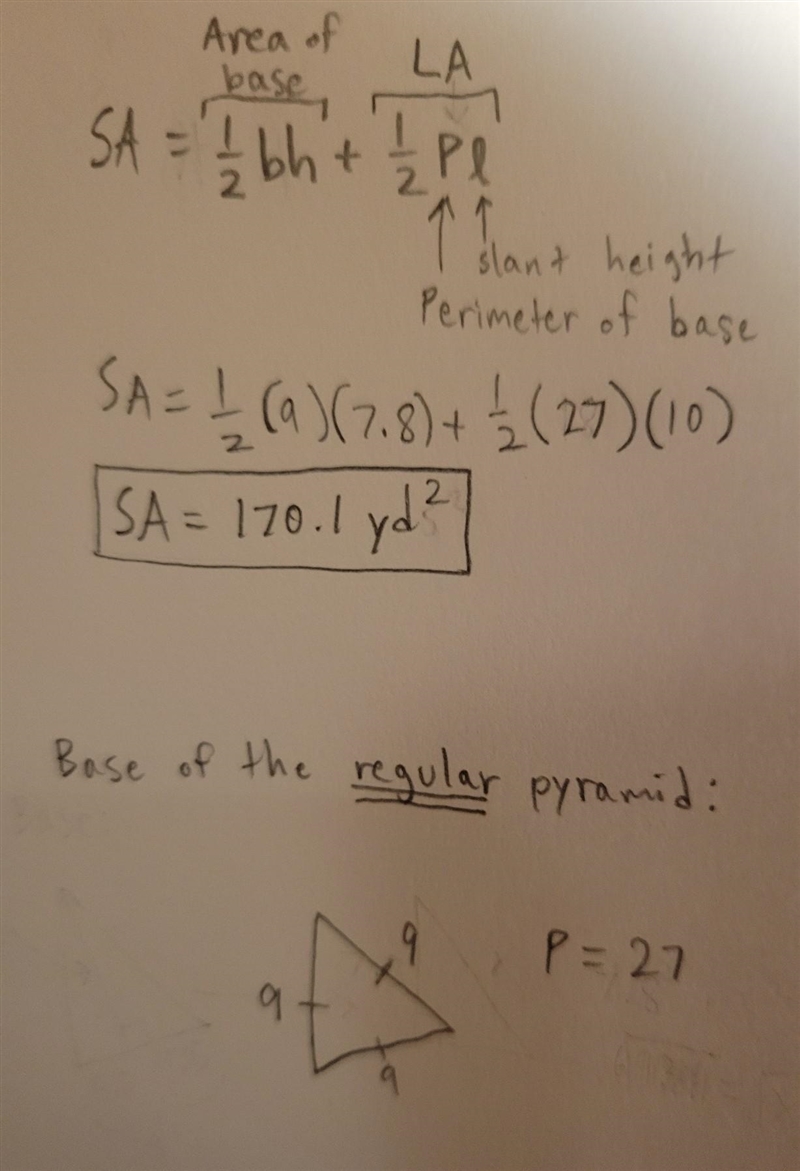 Area of
base
LA
SA = 1/2 bh + 1/2 Pl
slant height
Perimeter of base
SA = 1/2 (9)(7.8) + 1/2 (27)(10)
SA = 170.1 yd²
Base of the regular pyramid:
9
9
P = 27
9